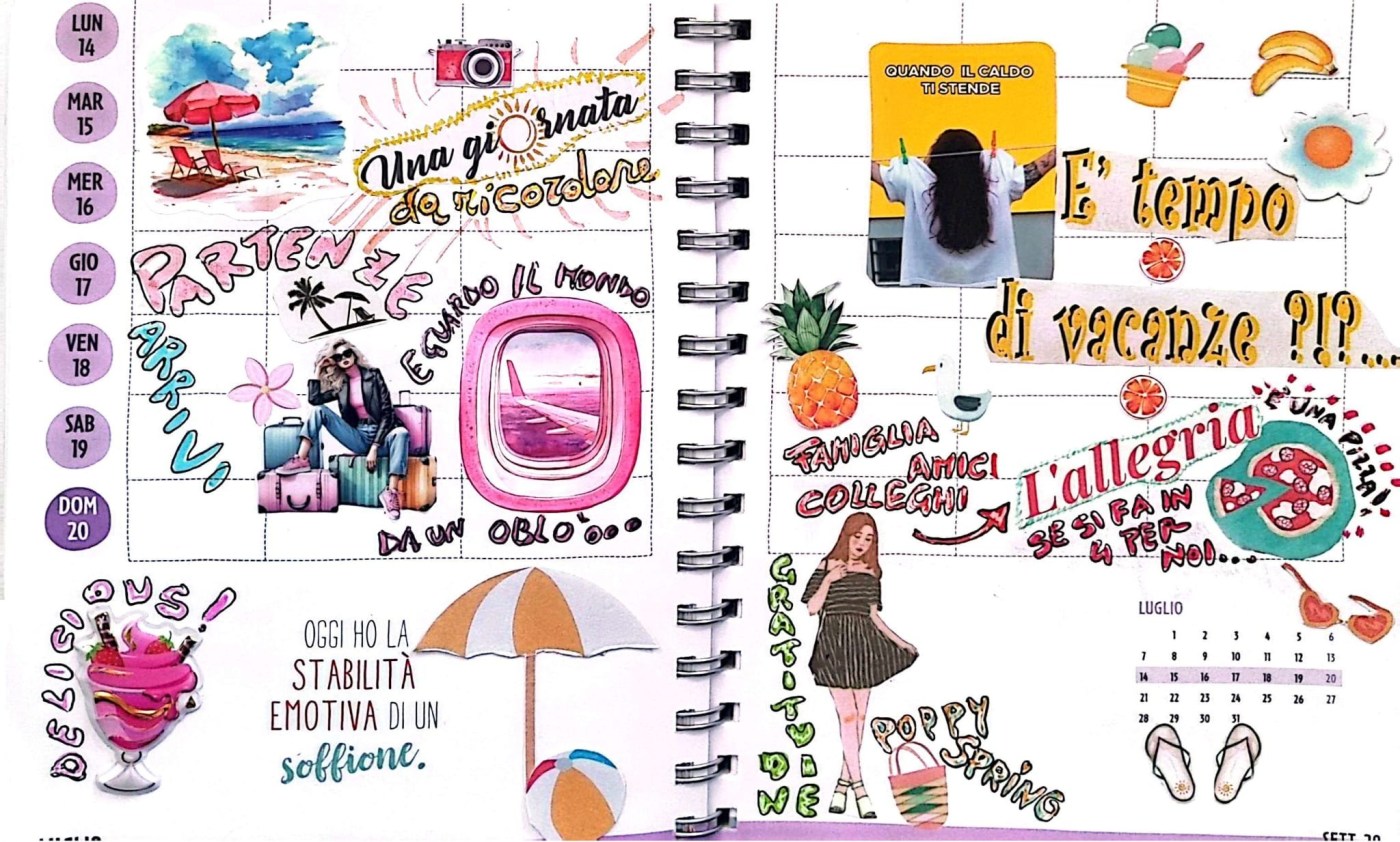 LUN
14
MAR
15
MER
16
GIO
17
VEN
18
SAB
19
DOM
20
Una giornata
da ricordare
PARTENZE
ARRIVI
E GUARDO IL MONDO
DA UN OBLO'...
DELICIOUS!
OGGI HO LA
STABILITÀ
EMOTIVA DI UN
soffione.
QUANDO IL CALDO
TI STENDE
E' tempo
di vacanze ?!?...
FAMIGLIA
AMICI
COLLEGHI
L'allegria
È UNA PIZZA!
SE SI FA IN
4 PER
NOI...
GRATITUDINE
POPPY
SPRING
LUGLIO
1 2 3 4 5 6
7 8 9 10 11 12 13
14 15 16 17 18 19 20
21 22 23 24 25 26 27
28 29 30 31